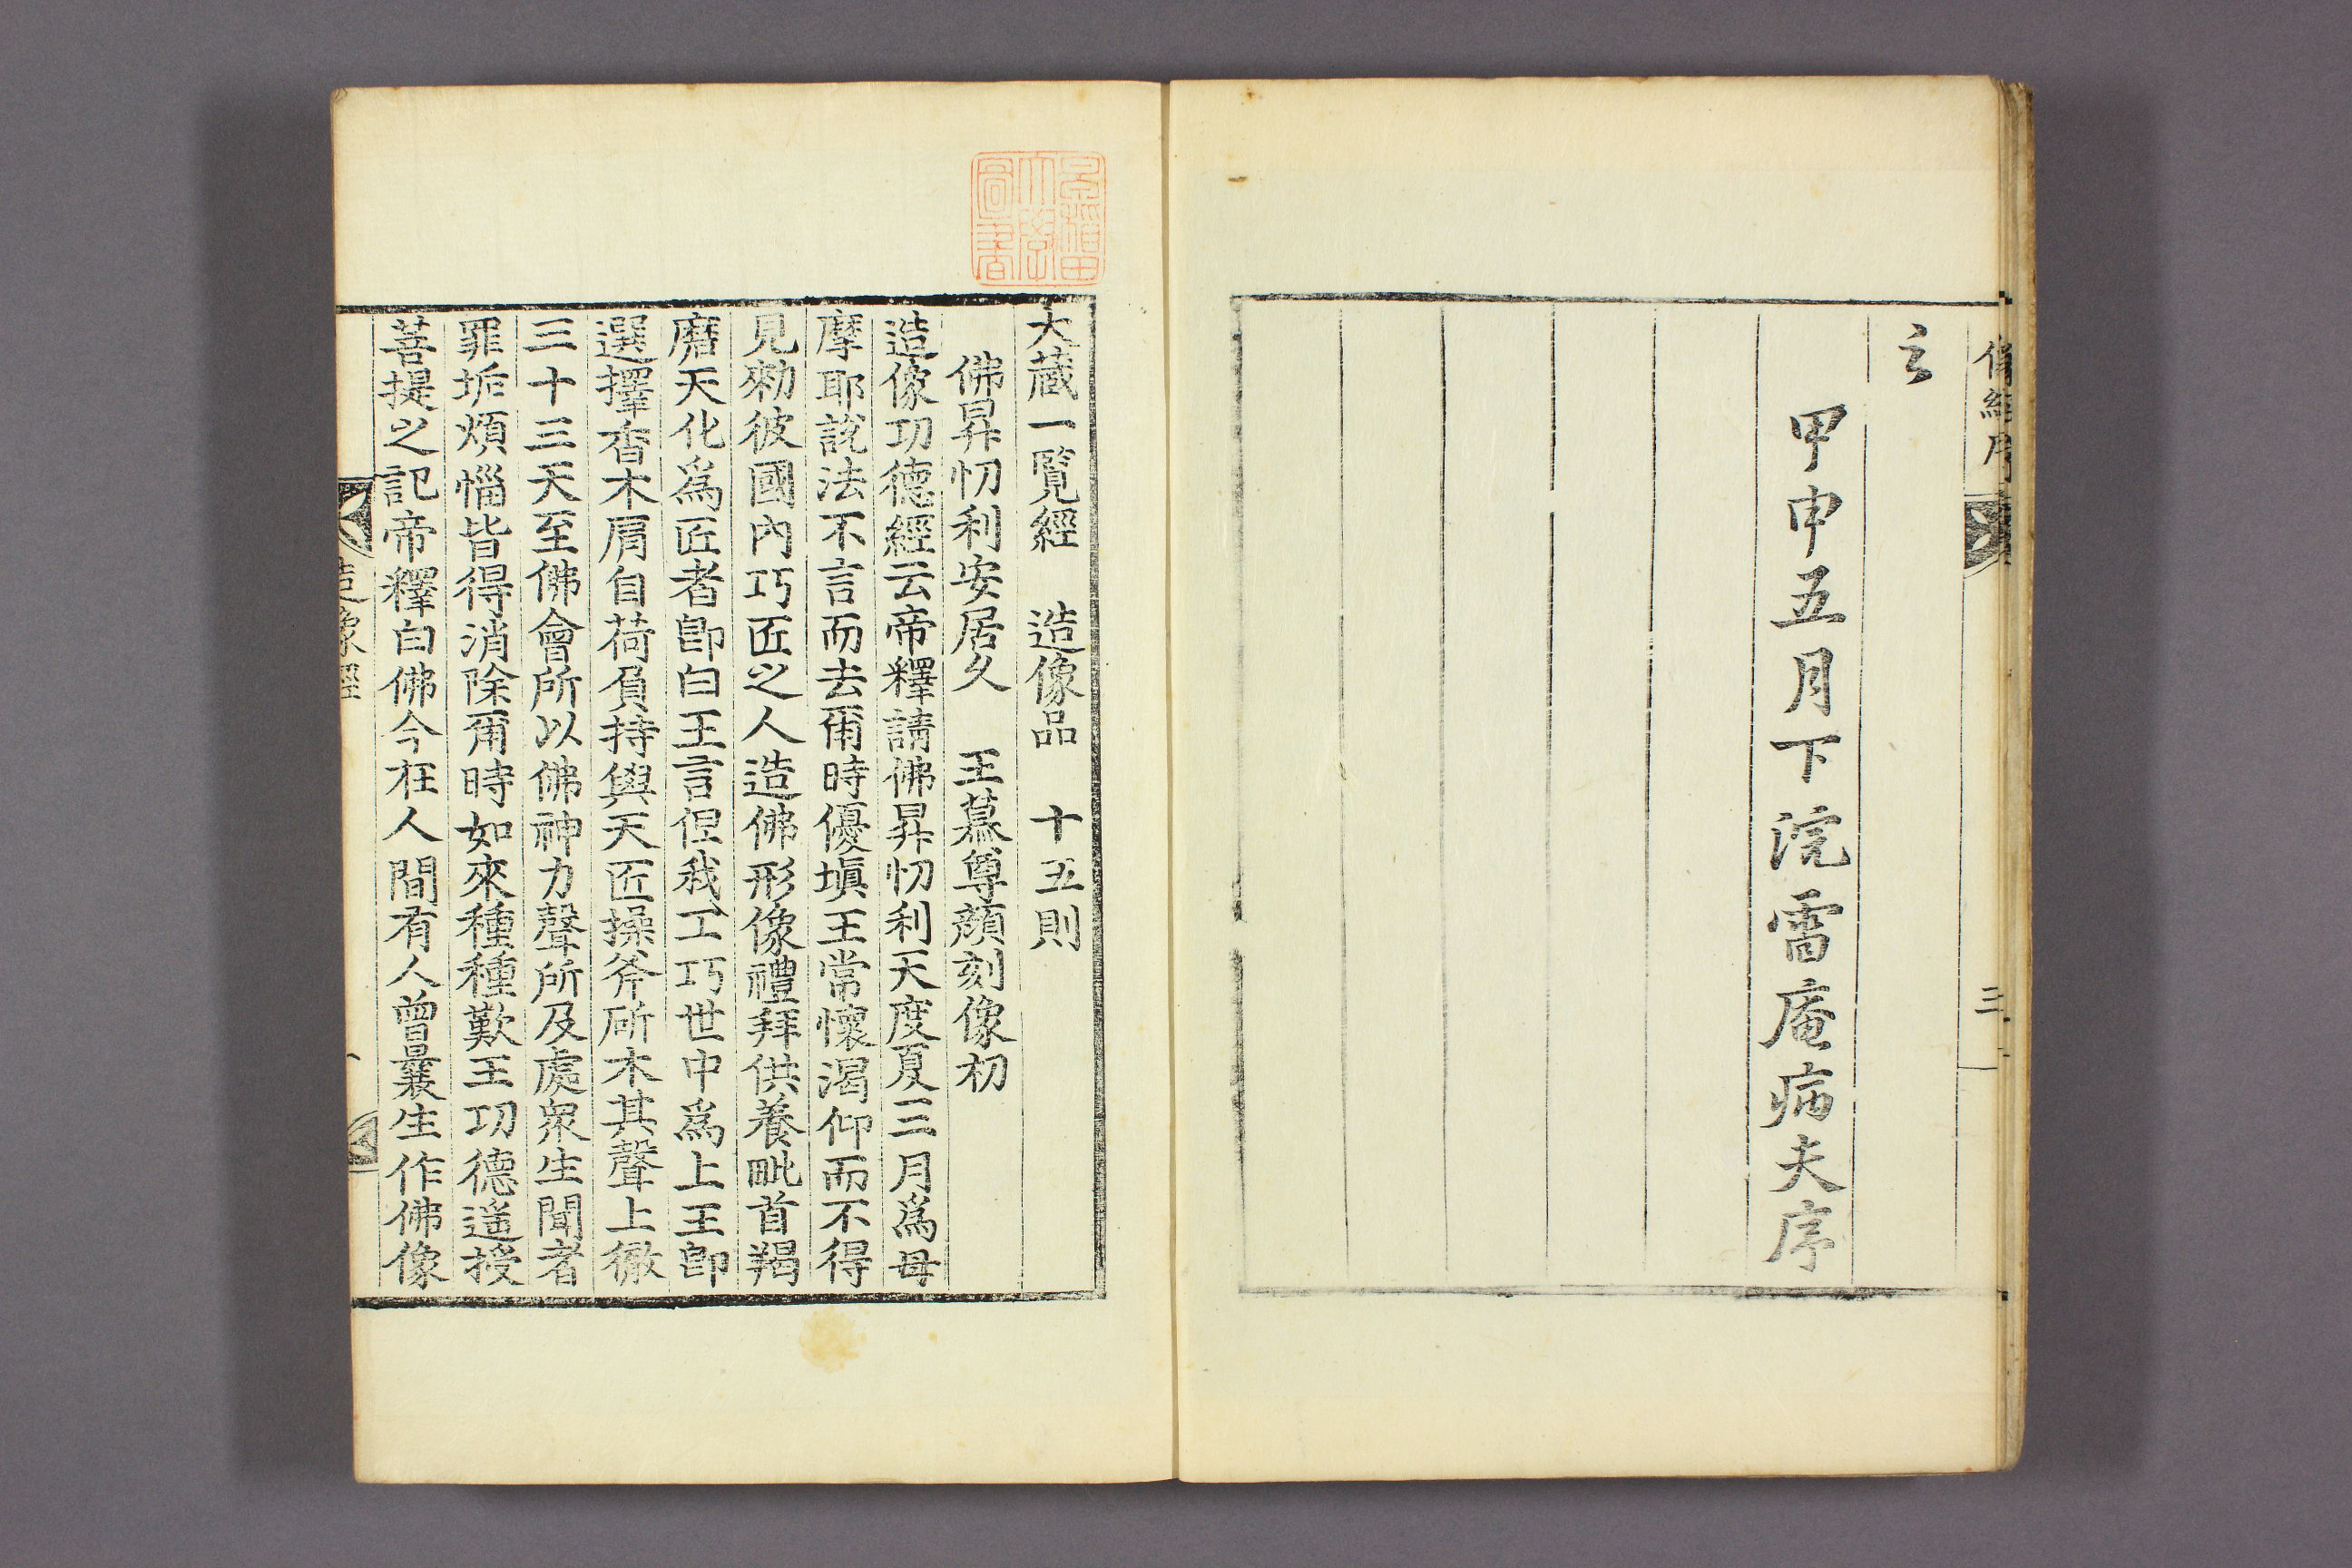 云
甲申五月下浣雷庵病夫序
三
大藏一覽經 造像品 十五則
佛昇忉利安居久 王慕尊顏刻像初
造像功德經云帝釋請佛昇忉利天度夏三月爲母
摩耶說法不言而去爾時優塡王常懷渴仰而不得
見勑彼國內巧匠之人造佛形像禮拜供養毗首羯
磨天化爲匠者卽白王言但我工巧世中爲上王卽
選擇香木肩自荷負持與天匠操斧斫木其聲上徹
三十三天至佛會所以佛神力聲所及處衆生聞者
罪垢煩惱皆得消除爾時如來種種歎王功德遥授
菩提之記帝釋白佛今在人間有人曾曩生作佛像
造像經
早稲田大學圖書